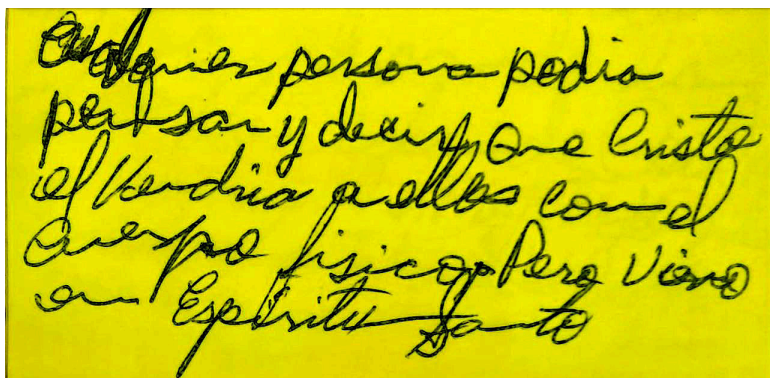 Cualquier persona podia
pensar y decir, que Cristo
el Vendria a ellos con el
cuerpo fisico, Pero Vieno
en Espiritu Santo